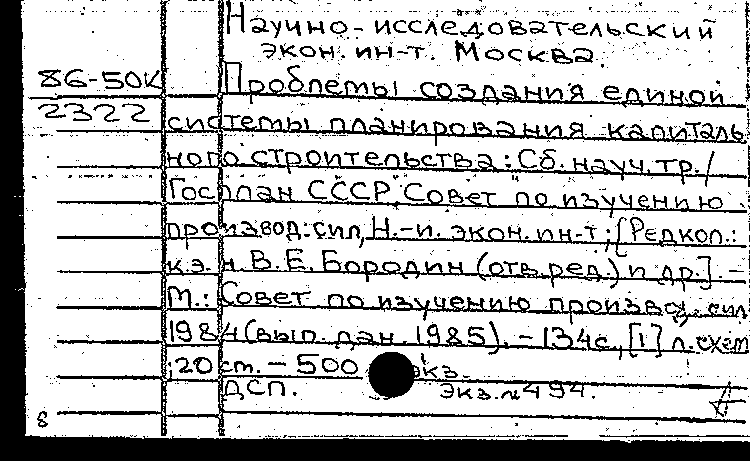 Научно-исследовательский
экон. ин-т. Москва.
86-50К Проблемы создания единой
2322 системы планирования капиталь
ного строительства: Сб. науч. тр./
Госплан СССР, Совет по изучению
производ. сил, Н.-и. экон. ин-т; [Редкол.:
к.э.н. В.Е. Бородин (отв. ред.) и др.]. -
М.: Совет по изучению производ. сил
1984 (вып. дан. 1985). - 134 с., [1] л. схем
; 20 ст. - 500 экз.
ДСП. Экз. № 494.
8